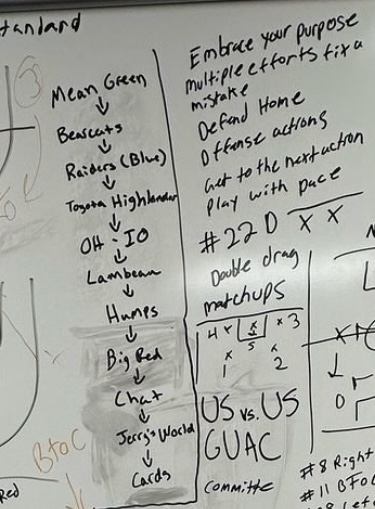 tandard
Mean Green
Bearcats
Raiders (Blue)
Toyota Highlander
OH-IO
Lambeau
Humps
Big Red
Chat
Jerry's World
Cards
Embrace your purpose
multiple efforts fix a
mistake
Defend Home
Offense actions
Get to the next action
Play with pace
#22 D X X
Double drag
matchups
4 x x x 3
5
x x
1 2
US vs. US
GUAC
Committe
BtoC
Red
#8 Right
#11 BFo